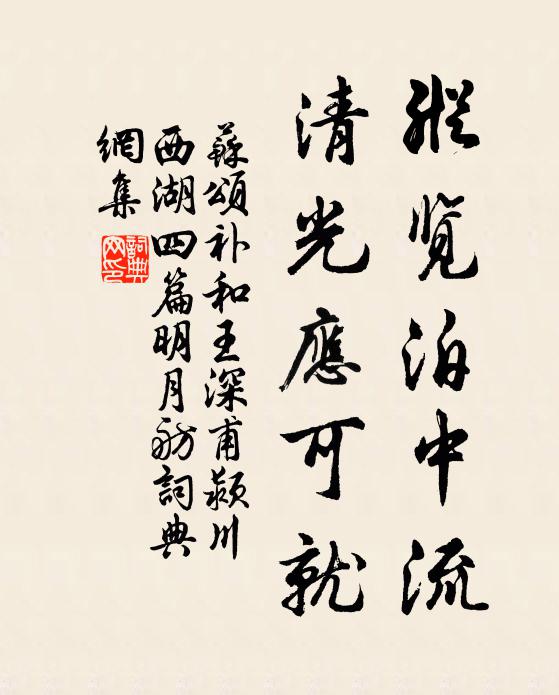 縱览泊中流
清光應可就
蘇頌补和王深甫颍川
西湖四篇明月舫詞典
網集
詞典网印